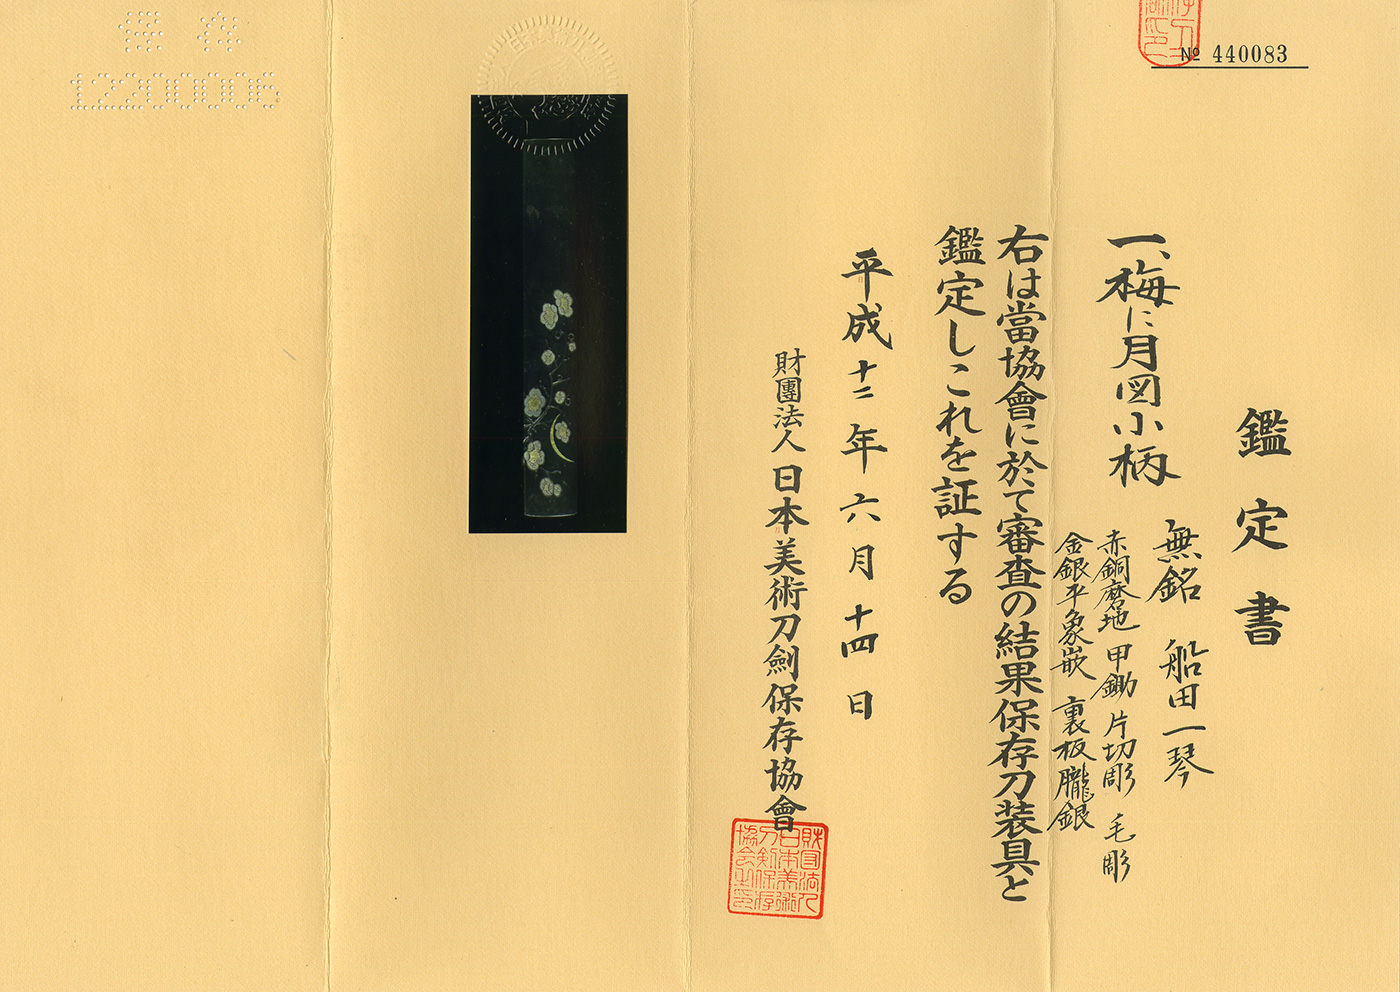 № 440083
鑑定書
一、梅に月図小柄
無銘 船田一琴
赤銅磨地 甲鋤 片切彫 毛彫
金銀平象嵌 裏板朧銀
右は當協會に於て審査の結果保存刀装具と
鑑定しこれを証する
平成十二年六月十四日
財團法人日本美術刀劍保存協會
保存
12200006